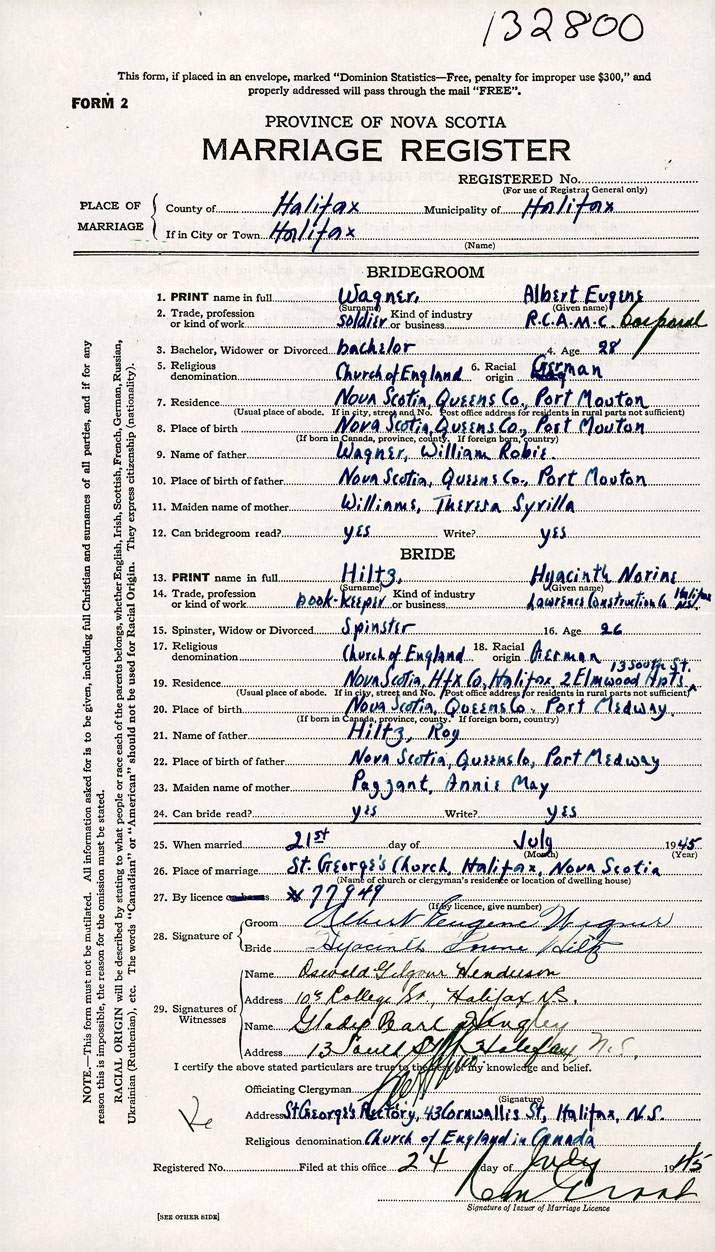 132800
This form, if placed in an envelope, marked "Dominion Statistics—Free, penalty for improper use $300," and
properly addressed will pass through the mail "FREE".
FORM 2
PROVINCE OF NOVA SCOTIA
MARRIAGE REGISTER
REGISTERED No.
(For use of Registrar General only)
PLACE OF MARRIAGE
County of Halifax Municipality of Halifax
If in City or Town Halifax
(Name)
BRIDEGROOM
1. PRINT name in full Wagner, Albert Eugene
(Surname) (Given name)
2. Trade, profession or kind of work soldier Kind of industry or business R.C.A.M.C. Corporal
3. Bachelor, Widower or Divorced bachelor 4. Age 28
5. Religious denomination Church of England 6. Racial origin German
7. Residence Nova Scotia, Queens Co., Port Mouton
(Usual place of abode. If in city, street and No. Post office address for residents in rural parts not sufficient)
8. Place of birth Nova Scotia, Queens Co., Port Mouton
(If born in Canada, province, county. If foreign born, country)
9. Name of father Wagner, William Robie.
10. Place of birth of father Nova Scotia, Queens Co., Port Mouton
11. Maiden name of mother Williams, Theresa Syrilla
12. Can bridegroom read? yes Write? yes
BRIDE
13. PRINT name in full Hiltz, Hyacinth Norine
(Surname) (Given name)
14. Trade, profession or kind of work book-keeper Kind of industry or business Lawrence Construction Co Halifax N.S.
15. Spinster, Widow or Divorced Spinster 16. Age 26
17. Religious denomination Church of England 18. Racial origin German
13 South St.
19. Residence Nova Scotia, Hfx Co, Halifax 2 Elmwood Apts
(Usual place of abode. If in city, street and No. Post office address for residents in rural parts not sufficient)
20. Place of birth Nova Scotia, Queens Co. Port Medway
(If born in Canada, province, county. If foreign born, country)
21. Name of father Hiltz, Roy
22. Place of birth of father Nova Scotia, Queens Co, Port Medway
23. Maiden name of mother Paggant, Annie May
24. Can bride read? yes Write? yes
25. When married 21st day of July 1945
(Month) (Year)
26. Place of marriage St. George's Church, Halifax, Nova Scotia
(Name of church or clergyman's residence or location of dwelling house)
27. By licence 77949
(If by licence, give number)
28. Signature of
Groom Albert Eugene Wagner
Bride Hyacinth Hiltz
29. Signatures of Witnesses
Name Oswald Gilgour Henderson
Address College St., Halifax N.S.
Name Gladys Pearl
Address 13 South St Halifax, N.S.
I certify the above stated particulars are true to the best of my knowledge and belief.
Officiating Clergyman
(Signature)
Address St George's Rectory, 43 Cornwallis St, Halifax, N.S.
Religious denomination Church of England in Canada
Registered No. Filed at this office 24 day of July 1945
Signature of Issuer of Marriage Licence
[SEE OTHER SIDE]
NOTE.—This form must not be mutilated. All information asked for is to be given, including full Christian and surnames of all parties, and if for any
reason this is impossible, the reason for the omission must be stated.
RACIAL ORIGIN will be described by stating to what people or race each of the parents belongs, whether English, Irish, Scottish, French, German, Russian,
Ukrainian (Ruthenian), etc. The words "Canadian" or "American" should not be used for Racial Origin. They express citizenship (nationality).